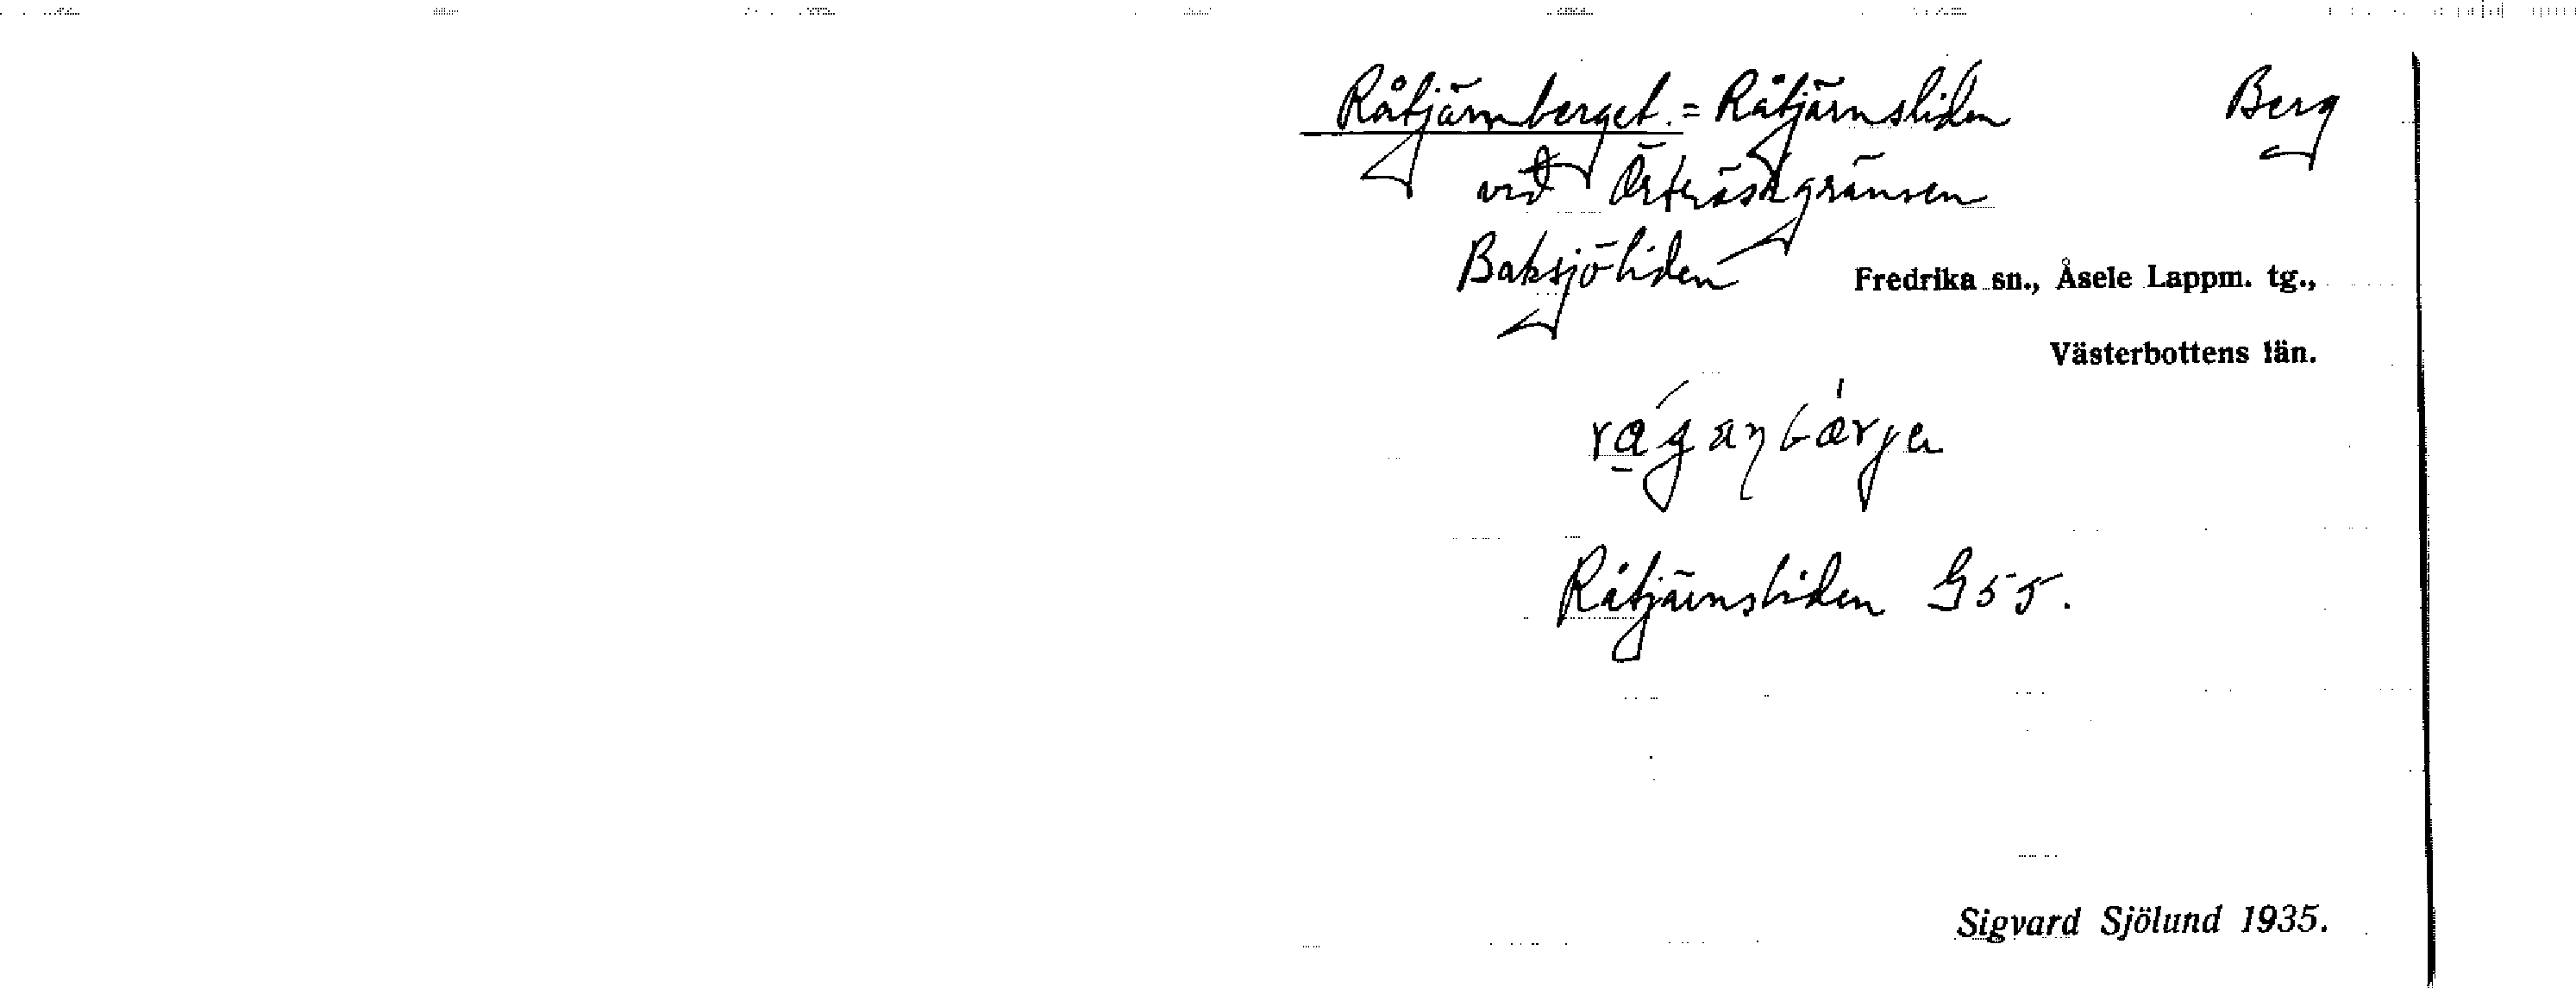 Råtjärnberget. = Råtjärnsliden Berg
vid Örträskgränsen
Baksjöliden Fredrika sn., Åsele Lappm. tg.,
Västerbottens län.
Råtjärnsliden G55.
Sigvard Sjölund 1935.